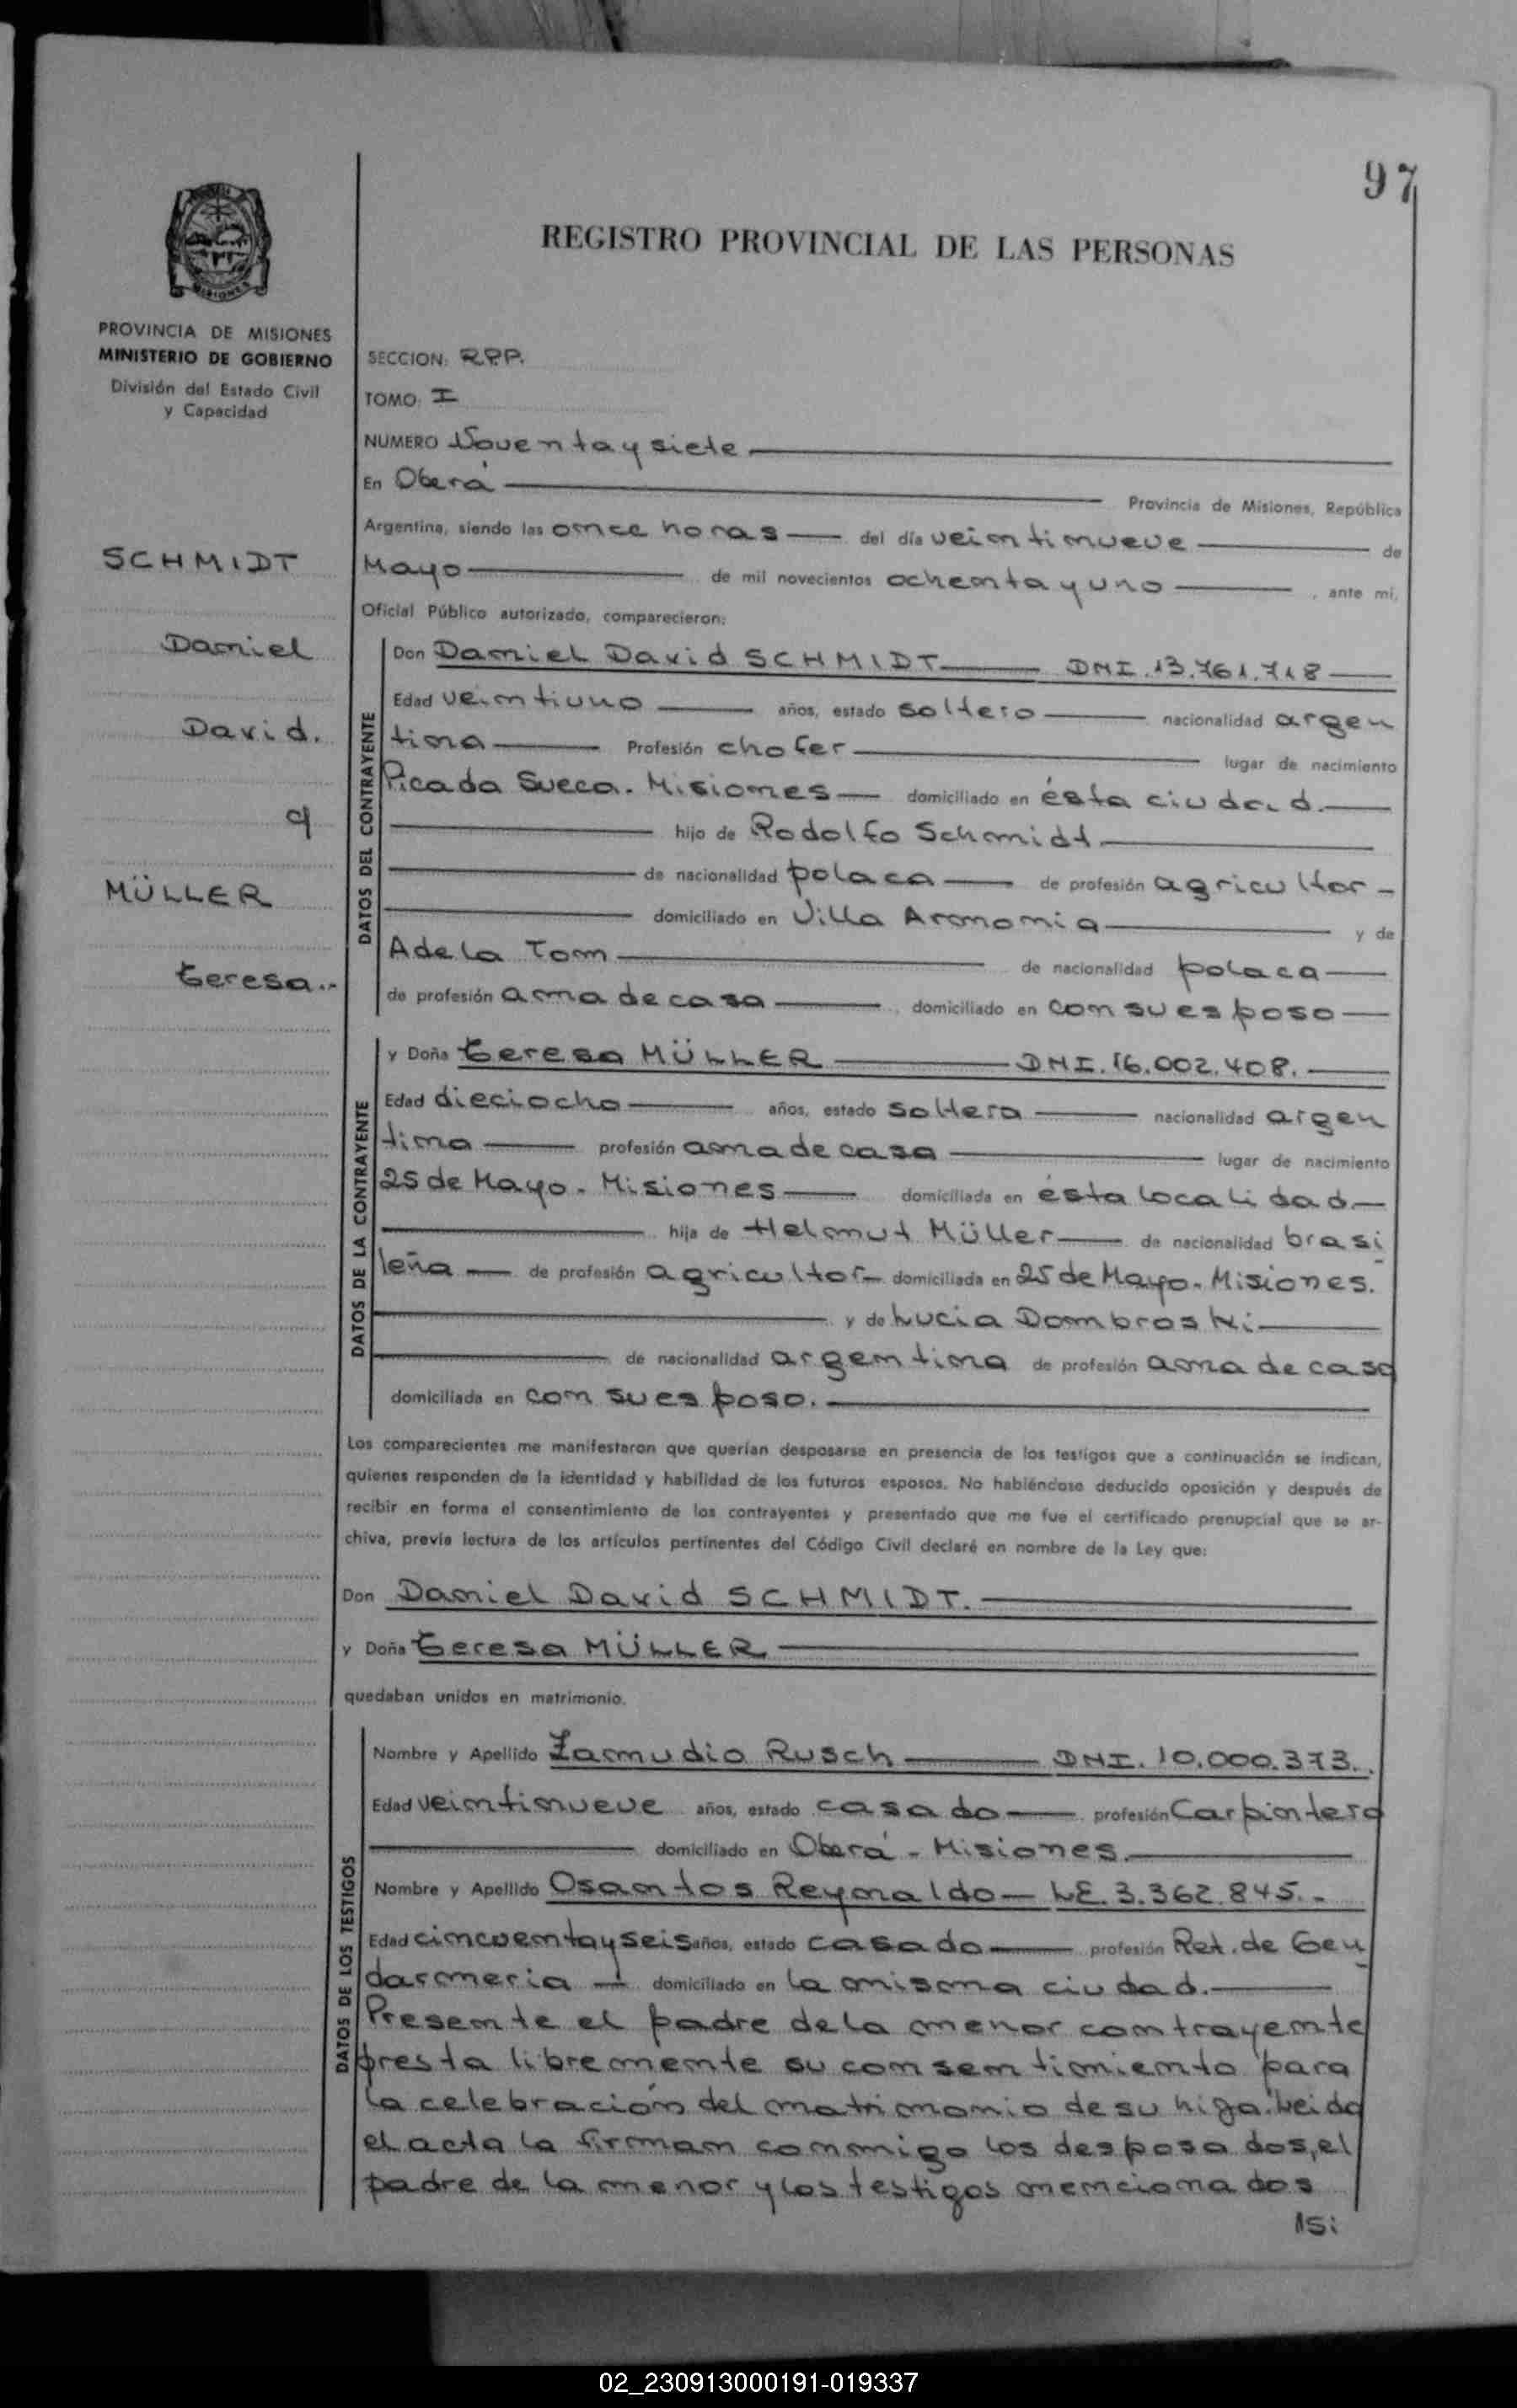 97
REGISTRO PROVINCIAL DE LAS PERSONAS
MISIONES
PROVINCIA DE MISIONES
MINISTERIO DE GOBIERNO
División del Estado Civil
y Capacidad
SCHMIDT
Daniel
David.
y
MÜLLER
Teresa.-
SECCION: R.P.P.
TOMO: I
NUMERO Noventa y siete
En Oberá Provincia de Misiones, República
Argentina, siendo las once horas del día veintinueve de
Mayo de mil novecientos ochenta y uno, ante mí,
Oficial Público autorizado, comparecieron:
DATOS DEL CONTRAYENTE
Don Daniel David SCHMIDT DNI.13.761.718
Edad veintiuno años, estado soltero nacionalidad argen
tina Profesión chofer lugar de nacimiento
Picada Sueca. Misiones domiciliado en ésta ciudad.
hijo de Rodolfo Schmidt
de nacionalidad polaca de profesión agricultor -
domiciliado en Villa Armonia y de
Adela Tom de nacionalidad polaca
de profesión ama de casa, domiciliado en con su esposo
DATOS DE LA CONTRAYENTE
y Doña Teresa MÜLLER DNI.16.002.408.
Edad dieciocho años, estado soltera nacionalidad argen
tina profesión ama de casa lugar de nacimiento
25 de Mayo. Misiones domiciliada en ésta localidad
hija de Helmut Müller de nacionalidad brasi
leña de profesión agricultor domiciliada en 25 de Mayo. Misiones.
y de Lucia Dombroski
de nacionalidad argentina de profesión ama de casa
domiciliada en con su esposo.
Los comparecientes me manifestaron que querían desposarse en presencia de los testigos que a continuación se indican,
quienes responden de la identidad y habilidad de los futuros esposos. No habiéndose deducido oposición y después de
recibir en forma el consentimiento de los contrayentes y presentado que me fue el certificado prenupcial que se ar-
chiva, previa lectura de los artículos pertinentes del Código Civil declaré en nombre de la Ley que:
Don Daniel David SCHMIDT.
y Doña Teresa MÜLLER
quedaban unidos en matrimonio.
DATOS DE LOS TESTIGOS
Nombre y Apellido Zamudio Rusch DNI. 10.000.373.
Edad veintinueve años, estado casado profesión Carpintero
domiciliado en Oberá - Misiones.
Nombre y Apellido Osantos Reynaldo - LE. 3.362.845.-
Edad cincuenta y seis años, estado casado profesión Ret. de Gen
darmeria domiciliado en la misma ciudad.
Presente el padre de la menor contrayente
presta libremente su consentimiento para
la celebración del matrimonio de su hija. Leida
el acta la firman conmigo los desposados, el
padre de la menor y los testigos mencionados
02_230913000191-019337